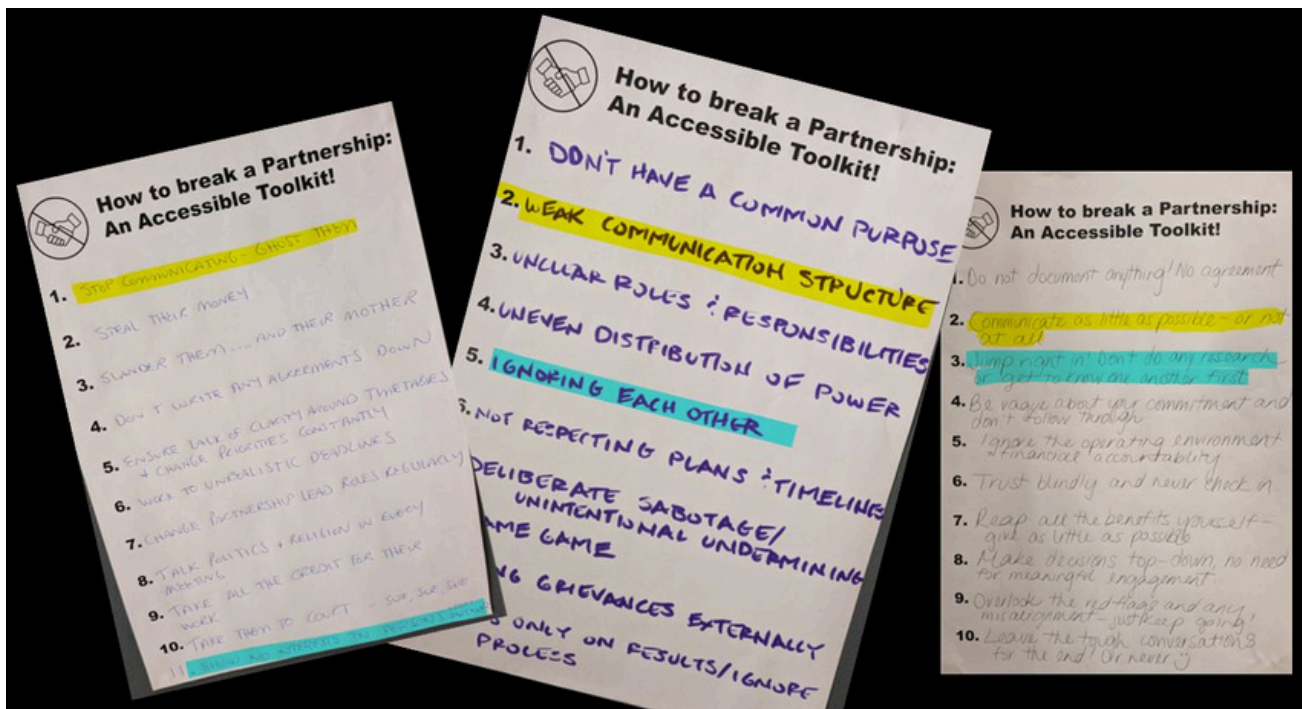 How to break a Partnership:
An Accessible Toolkit!
1. STOP COMMUNICATING - GHOST THEM
2. STEAL THEIR MONEY
3. SLANDER THEM... AND THEIR MOTHER
4. DON'T WRITE ANY AGREEMENTS DOWN
5. ENSURE LACK OF CLARITY AROUND TIMETABLES
+ CHANGE PRIORITIES CONSTANTLY
6. WORK TO UNREALISTIC DEADLINES
7. CHANGE PARTNERSHIP LEAD ROLES REGULARLY
8. TALK POLITICS + RELIGION IN EVERY
MEETING
9. TAKE ALL THE CREDIT FOR THEIR
WORK
10. TAKE THEM TO COURT - SUE, SUE, SUE
11. SHOW NO INTEREST IN
How to break a Partnership:
An Accessible Toolkit!
1. DON'T HAVE A COMMON PURPOSE
2. WEAK COMMUNICATION STRUCTURE
3. UNCLEAR ROLES & RESPONSIBILITIES
4. UNEVEN DISTRIBUTION OF POWER
5. IGNORING EACH OTHER
6. NOT RESPECTING PLANS & TIMELINES
DELIBERATE SABOTAGE/
UNINTENTIONAL UNDERMINING
AME GAME
NG GRIEVANCES EXTERNALLY
S ONLY ON RESULTS/IGNORE
PROCESS
How to break a Partnership:
An Accessible Toolkit!
1. Do not document anything! No agreement
2. Communicate as little as possible - or not
at all
3. Jump right in! Don't do any research
or "get" to know one another first
4. Be vague about your commitment and
don't follow through
5. Ignore the operating environment
+ financial accountability
6. Trust blindly and never check in
7. Reap all the benefits yourself -
give as little as possible
8. Make decisions top-down, no need
for meaningful engagement
9. Overlook the red flags and any
misalignment - just keep going!
10. Leave the tough conversations
for the end! Or never